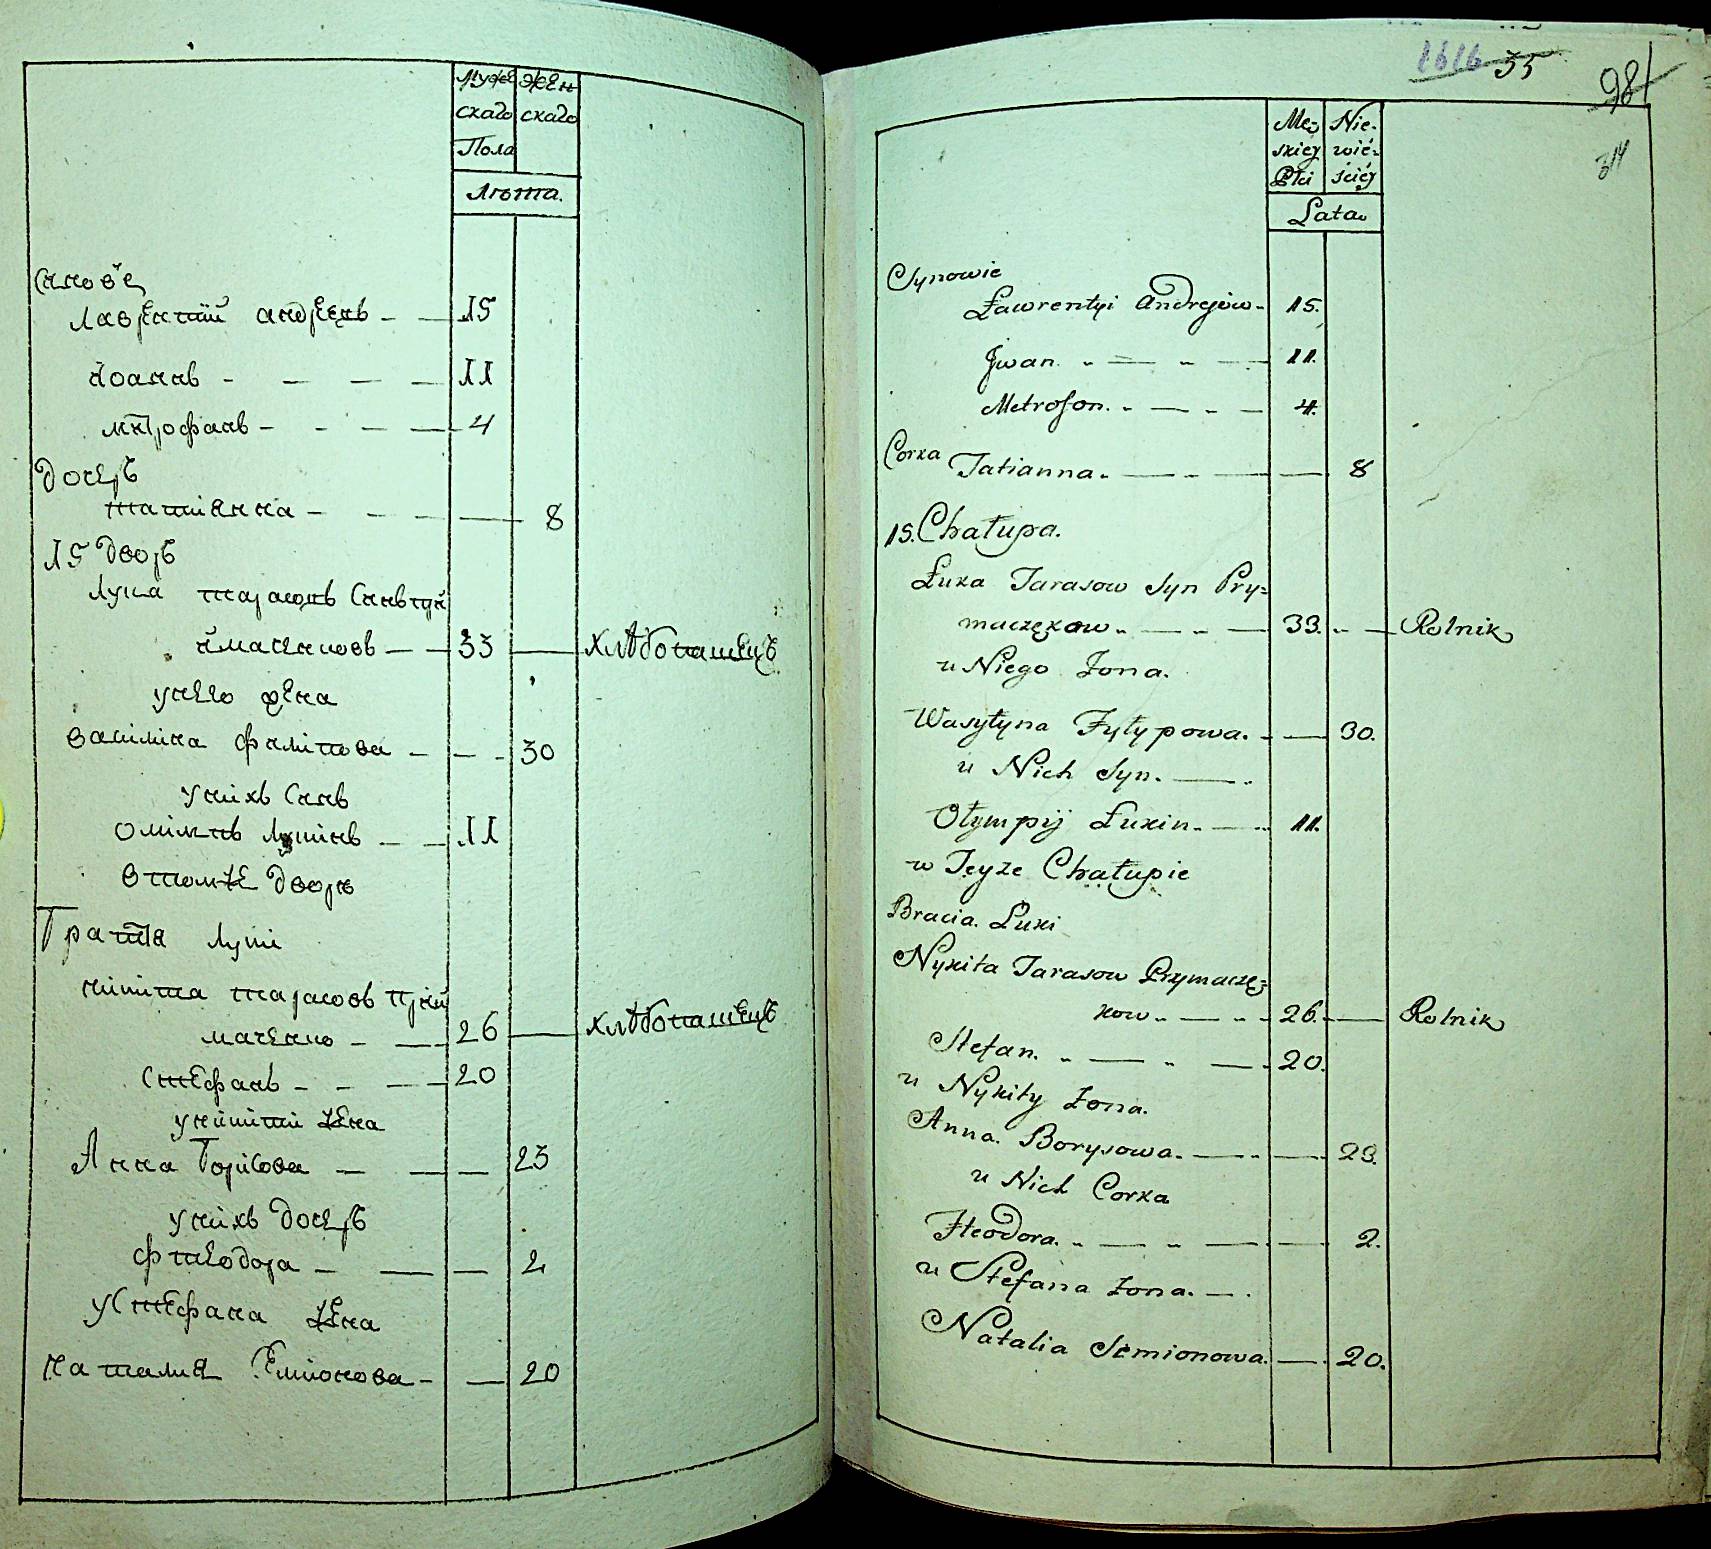 Муже Жен
скаго скаго
Пола
Лѣта.
Синовѣ
Лаврентий андреевъ — — 15
Иоаннъ - — — — 11
митрофанъ - - — — 4
дочеръ
татiянна - — — — 8
15 дворъ
Лука тарасовъ Синъ при
имаченковъ — — 33 — хлѣбопашецъ
унего жена
василина филипова — — - 30
унихъ Синъ
олимпъ Лукинъ — — 11
втомже дворѣ
Братiя луки
никита тарасовъ при
маченко - — 26 — хлѣбопашецъ
Стефанъ - - — — 20
уникити жена
Анна Борисова — — — 23
унихъ дочеръ
фтеодора — — — 2
уСтефана жена
наталия Семионова - — 20
1616 35 98
314
Mę- Nie-
skiey wie-
Płci sciey
Lata
Synowie
Ławrentyi Andrejow - 15.
Jwan. „ — „ — 11.
Metrofon. „ — „ — 4.
Corka Tatianna. — „ — — 8
15. Chałupa.
Łuka Tarasow Syn Pry=
maczękow „ — „ — 33. „ — Rolnik
u Niego Żona.
Wasyłyna Fyłypowa. - — 30.
u Nich Syn. — „
Ołympij Łukin. — „ 11.
w Teyże Chałupie
Bracia Łuki
Nykita Tarasow Prymaczę=
kow „ — „ „ 26. — Rolnik
Stefan. „ — „ — 20.
u Nykity Żona.
Anna. Borysowa. — „ — 23.
u Nich Corka
Fteodora. „ — „ — — 2.
u Stefana Żona. — .
Natalia Semionowa. — 20.